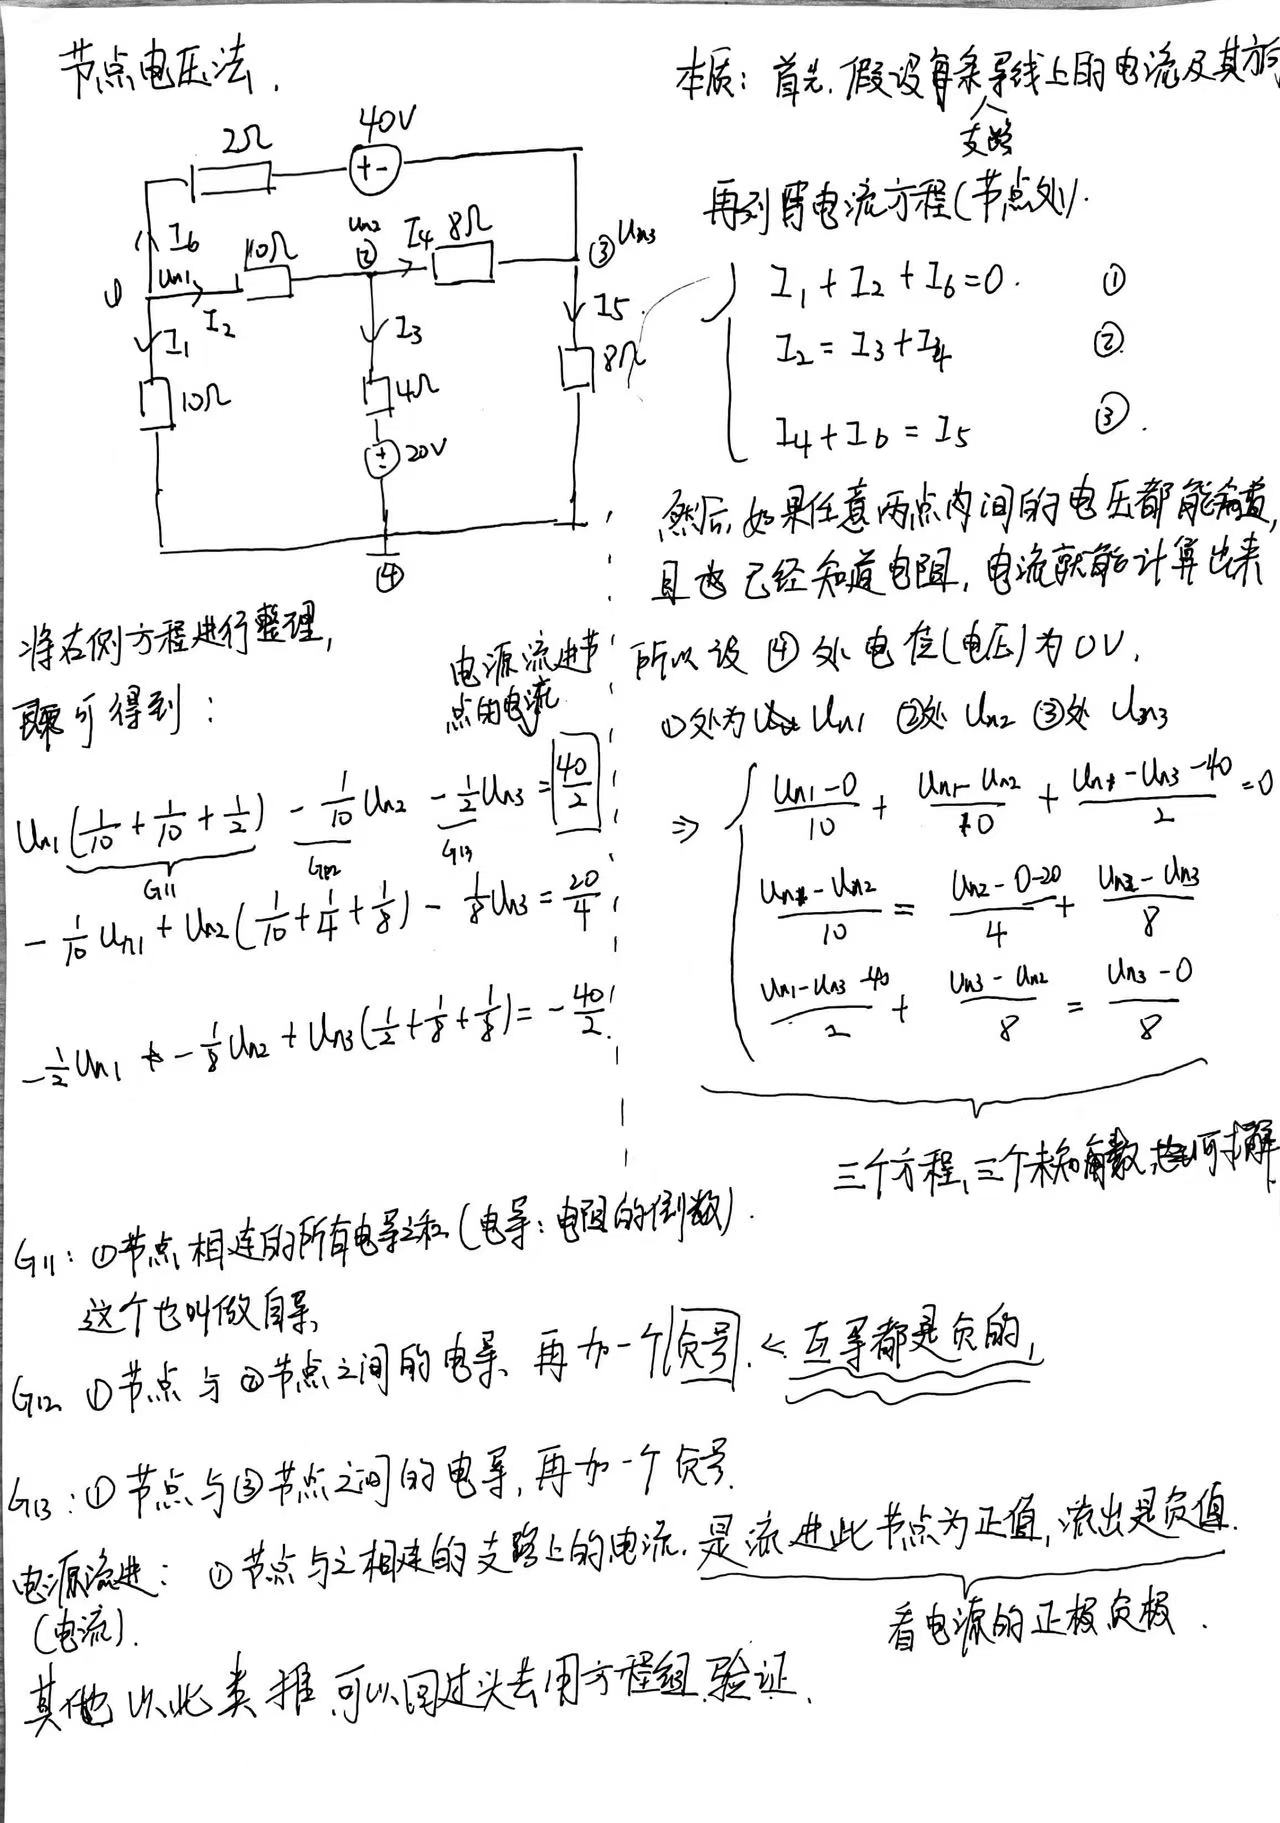 节点电压法.
本质: 首先, 假设每条导线上的电流及其方向
支路
再列写电流方程(节点处).
2Ω
40V
I6
10Ω
Un2
②
I4
8Ω
③
Un3
①
Un1
I2
I1
I3
I5
10Ω
4Ω
8Ω
20V
④
I1 + I2 + I6 = 0. ①
I2 = I3 + I4 ②
I4 + I6 = I5 ③.
然后, 如果任意两点间的电压都能知道,
且也已经知道电阻, 电流就能计算出来
所以设④处电位(电压)为0V,
①处为 Un1 ②处 Un2 ③处 Un3
⇒ (Un1-0)/10 + (Un1-Un2)/10 + (Un1-Un3-40)/2 = 0
(Un1-Un2)/10 = (Un2-0-20)/4 + (Un2-Un3)/8
(Un1-Un3-40)/2 + (Un3-Un2)/8 = (Un3-0)/8
三个方程, 三个未知数, 可求解
将右侧方程进行整理,
可得到:
电源流进节
点的电流
Un1(1/10 + 1/10 + 1/2) - 1/10 Un2 - 1/2 Un3 = 40/2
G11 G12 G13
-1/10 Un1 + Un2(1/10 + 1/4 + 1/8) - 1/8 Un3 = 20/4
-1/2 Un1 - 1/8 Un2 + Un3(1/2 + 1/8 + 1/8) = -40/2
G11: ①节点相连的所有电导之和(电导: 电阻的倒数).
这个也叫做自导
G12 ①节点与②节点之间的电导、再加一个负号. < 互导都是负的,
G13: ①节点与③节点之间的电导, 再加一个负号.
电源流进: ①节点与之相连的支路上的电流. 是流进此节点为正值, 流出是负值.
(电流).
看电源的正极负极.
其他以此类推 可以回过头去用方程组验证.